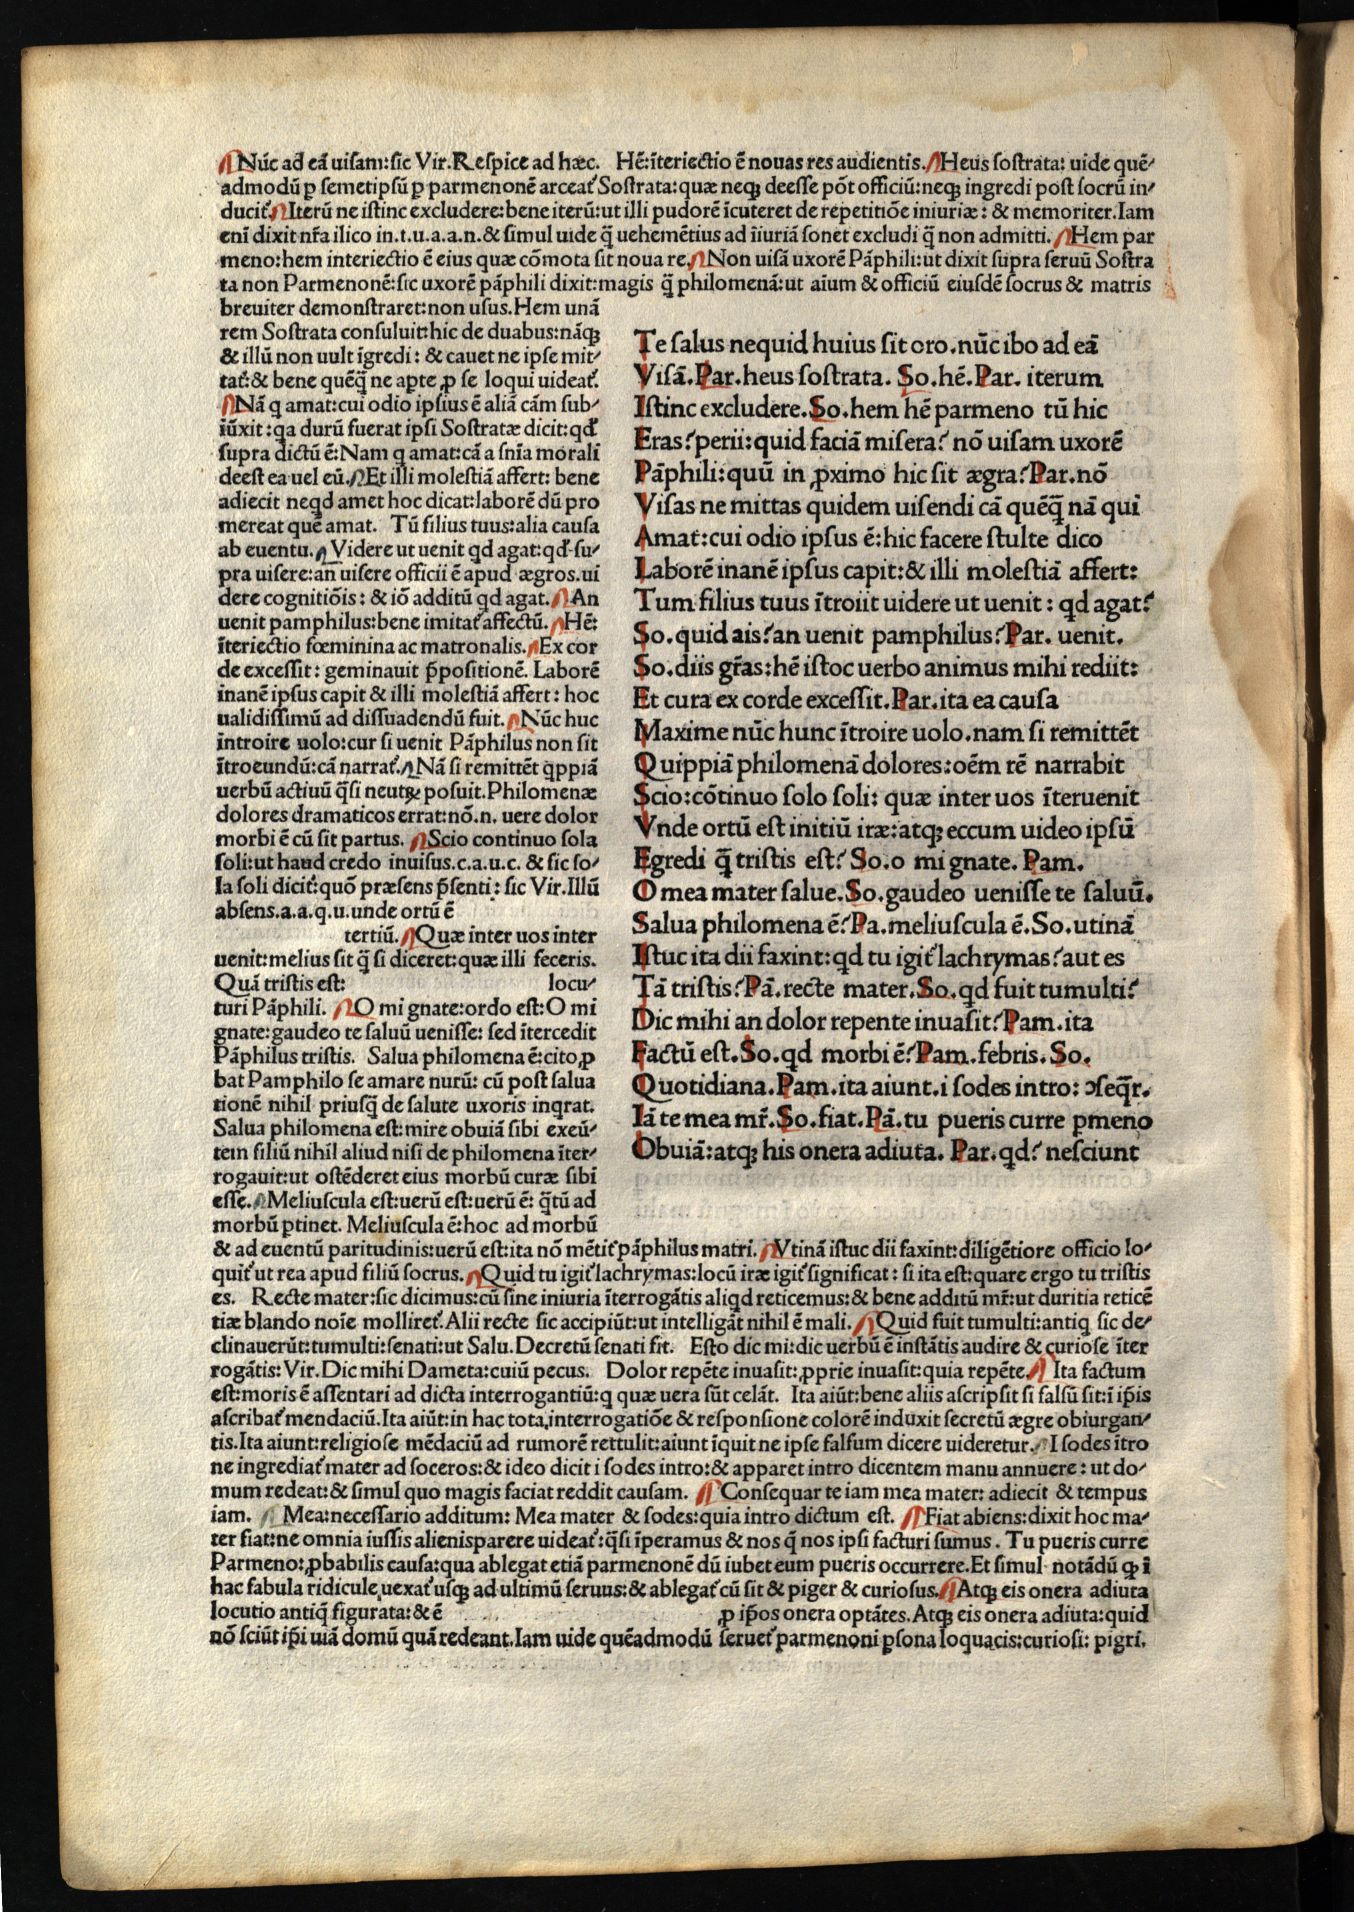 Nūc ad eā uisam: sic Vir. Respice ad hæc. Hē: īteriectio ē nouas res audientis. Heus sostrata: uide quē-
admodū ꝑ semetipsū ꝑ parmenonē arceat᷑ Sostrata: quæ neqꝫ deesse pōt officiū: neqꝫ ingredi post socrū in-
ducit᷑. Iterū ne istinc excludere: bene iterū: ut illi pudorē īcuteret de repetitiōe iniuriæ: & memoriter. Iam
enī dixit nr̄a ilico in.t.u.a.a.n. & simul uide q̄ uehemētius ad īiuriā sonet excludi q̄ non admitti. Hem par
meno: hem interiectio ē eius quæ cōmota sit noua re. Non uisā uxorē Pāphili: ut dixit supra seruū Sostra
ta non Parmenonē: sic uxorē pāphili dixit: magis q̄ philomenā: ut aīum & officiū eiusdē socrus & matris
breuiter demonstraret: non usus. Hem unā
rem Sostrata consuluit: hic de duabus: nāqꝫ
& illū non uult īgredi: & cauet ne ipse mit-
tat᷑: & bene quēq̄ ne aꝑte ꝓ se loqui uideat᷑.
Nā q amat: cui odio ipsius ē aliā cām sub-
iūxit: qa durū fuerat ipsi Sostratæ dicit: qd̓
supra dictū ē: Nam q amat: cā a snīa moralī
deest ea uel eū. Et illi molestiā affert: bene
adiecit neqd amet hoc dicat: laborē dū pro
mereat quē amat. Tū filius tuus: alia causa
ab euentu. Videre ut uenit qd agat: qd̓ su-
pra uisere: an uisere officii ē apud ægros. ui
dere cognitiōis: & iō additū qd agat. An
uenit pamphilus: bene imitat᷑ affectū. Hē:
īteriectio fœminina ac matronalis. Ex cor
de excessit: geminauit p̄positionē. Laborē
inanē ipsus capit & illi molestiā affert: hoc
ualidissimū ad dissuadendū fuit. Nūc huc
īntroire uolo: cur si uenit Pāphilus non sit
ītroeundū: cā narrat᷑. Nā si remittēt q̄ppiā
uerbū actiuū q̄si neutꝝ posuit. Philomenæ
dolores dramaticos errat: nō.n. uere dolor
morbi ē cū sit partus. Scio continuo sola
soli: ut haud credo inuisus.c.a.u.c. & sic so-
la soli dicit᷑: quō præsens p̄senti: sic Vir. Illū
absens.a.a.q.u. unde ortū ē
tertiū. Quæ inter uos inter
uenit: melius sit q̄ si diceret: quæ illi feceris.
Quā tristis est: locu-
turi Pāphili. O mi gnate: ordo est: O mi
gnate: gaudeo te saluū uenisse: sed ītercedit
Pāphilus tristis. Salua philomena ē: cito ꝓ
bat Pamphilo se amare nurū: cū post salua
tionē nihil priusq̄ de salute uxoris inqrat.
Salua philomena est: mire obuiā sibi exeū-
tem filiū nihil aliud nisi de philomena īter-
rogauit: ut ostēderet eius morbū curæ sibī
esse. Meliuscula est: uerū est: uerū ē: q̄tū ad
morbū ꝑtinet. Meliuscula ē: hoc ad morbū
Te salus nequid huius sit oro. nūc ibo ad eā
Visā. Par. heus sostrata. So. hē. Par. iterum
Istinc excludere. So. hem hē parmeno tū hic
Eras? perii: quid faciā misera? nō uisam uxorē
Pāphili: quū in ꝓximo hic sit ægra? Par. nō
Visas ne mittas quidem uisendi cā quēq̄ nā qui
Amat: cui odio ipsus ē: hic facere stulte dico
Laborē inanē ipsus capit: & illi molestiā affert:
Tum filius tuus ītroiit uidere ut uenit: qd agat?
So. quid ais? an uenit pamphilus? Par. uenit.
So. diis gr̄as: hē istoc uerbo animus mihi rediit:
Et cura ex corde excessit. Par. ita ea causa
Maxime nūc hunc ītroire uolo. nam si remittēt
Quippiā philomenā dolores: oēm rē narrabit
Scio: cōtinuo solo soli: quæ inter uos īteruenit
Vnde ortū est initiū iræ: atqꝫ eccum uideo ipsū
Egredi q̄ tristis est? So. o mi gnate. Pam.
O mea mater salue. So. gaudeo uenisse te saluū.
Salua philomena ē? Pa. meliuscula ē. So. utinā
Istuc ita dii faxint: qd tu igit᷑ lachrymas? aut es
Tā tristis? Pā. recte mater. So. qd fuit tumulti?
Dic mihi an dolor repente inuasit? Pam. ita
Factū est. So. qd morbi ē? Pam. febris. So.
Quotidiana. Pam. ita aiunt. i sodes intro: ↄseq̄r.
Iā te mea mr̄. So. fiat. Pā. tu pueris curre ꝑmeno
Obuiā: atqꝫ his onera adiuta. Par. qd? nesciunt
& ad euentū paritudinis: uerū est: ita nō mētit᷑ pāphilus matri. Vtinā istuc dii faxint: diligētiore officio lo-
quit᷑ ut rea apud filiū socrus. Quid tu igit᷑ lachrymas: locū iræ igit᷑ significat: si ita est: quare ergo tu tristis
es. Recte mater: sic dicimus: cū sine iniuria īterrogātis aliqd reticemus: & bene additū mr̄: ut duritia reticē
tiæ blando noīe molliret᷑. Alii recte sic accipiūt: ut intelligāt nihil ē mali. Quid fuit tumulti: antiq sic de-
clinauerūt: tumulti: senati: ut Salu. Decretū senati fit. Esto dic mi: dic uerbū ē instātis audire & curiose īter
rogātis: Vir. Dic mihi Dameta: cuiū pecus. Dolor repēte inuasit: ꝓprie inuasit: quia repēte. Ita factum
est: moris ē assentari ad dicta interrogantiū: q quæ uera sūt celāt. Ita aiūt: bene aliis ascripsit si falsū sit: ī ip̄is
ascribat᷑ mendaciū. Ita aiūt: in hac tota interrogatiōe & responsione colorē induxit secretū ægre obiurgan-
tis. Ita aiunt: religiose mēdaciū ad rumorē rettulit: aiunt īquit ne ipse falsum dicere uideretur. I sodes ītro
ne ingrediat᷑ mater ad soceros: & ideo dicit i sodes intro: & apparet intro dicentem manu annuere: ut do-
mum redeat: & simul quo magis faciat reddit causam. Consequar te iam mea mater: adiecit & tempus
iam. Mea: necessario additum: Mea mater & sodes: quia intro dictum est. Fiat abiens: dixit hoc ma-
ter fiat: ne omnia iussis alienisparere uideat᷑: q̄si īperamus & nos q̄ nos ipsi facturi sumus. Tu pueris curre
Parmeno: ꝓbabilis causa: qua ablegat etiā parmenonē dū iubet eum pueris occurrere. Et simul notādū qꝫ ī
hac fabula ridicule uexat᷑ usqꝫ ad ultimū seruus: & ablegat᷑ cū sit & piger & curiosus. Atqꝫ eis onera adiuta
locutio antiq̄ figurata: & ē ꝓ ip̄os onera optātes. Atqꝫ eis onera adiuta: quid
nō sciūt ip̄i uiā domū quā redeant. Iam uide quēadmodū seruet᷑ parmenoni ꝑsona loquacis: curiosi: pigri.